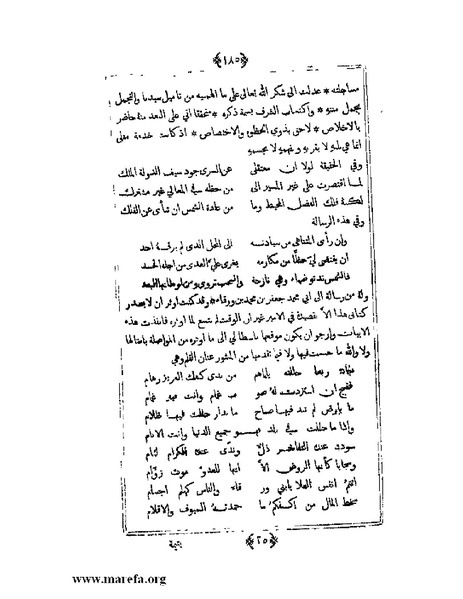 ﴿١٨٥﴾
مساجلتك * عدلت الى شكر الله تعالى على ما الهمنيه من تاميل سيدنا والتجمل
بجميل مننه * واكتساب الشرف بسمة ذكره * متحققا انى على البعد منه حاضر
بالاخلاص * لاحق بذوى الحظوة والاختصاص * اذ كانت خدمة مثلى
انما هى لمثله بقربه لا بجسمه
وفى الحقيقة لولا ان معتقلى عن السرى جود سيف الدولة الملك
لما اقتصرت على غير المسير الى من حظه فى المعالى غير مشترك
لكنه فلك الفضل المحيط وما من عادة الشمس ان تنأى عن الفلك
وفى هذه الرسالة
وان رأى المتناهى من سيادته الى المحل الذى لم يرقه احد
ان يقتضى لى حظا من مكارمه يغرى على العدى من اجله الحسد
فالشمس تدنو ضياء وهى نازحة والسحب تروى ومن اوطانها البعد
وله من رسالة الى ابى محمد جعفر بن محمد بن ورقاء * وقد كنت اوثر ان لا يصدر
كتابى هذا الا بقصيدة فى الامير غير ان الوقت لم يتسع لما اوثره فانفذت هذه
الابيات وارجو ان يكون موقعها باسطا لى الى ما اوثره من المواصلة بامثالها
ولا والله ما حبست فيها ولا فيما تقدمها من المنثور عنان القلم وهى
ربعا حللته بالمام من ندى كفك العزيز رهام
ان استزدت له صو ب غمام وانت فيه غمام
ما بارض لم تبد فيها صباح ما بدار حللت فيها ظلام
واذا ما حللت فى بلد فهـ ـو جميع الدنيا وانت الانام
سودد عنه التفاخر ذل وندى عنده الكرام لئام
وسجايا كانها الروض الا انها للعدو موت زؤام
انتم انفس العلا يابنى ور قاء والناس كلهم اجسام
سخط المال من اكفكم ما حمدته السيوف والاقلام
﴿٢٥﴾ يتيمة
www.marefa.org